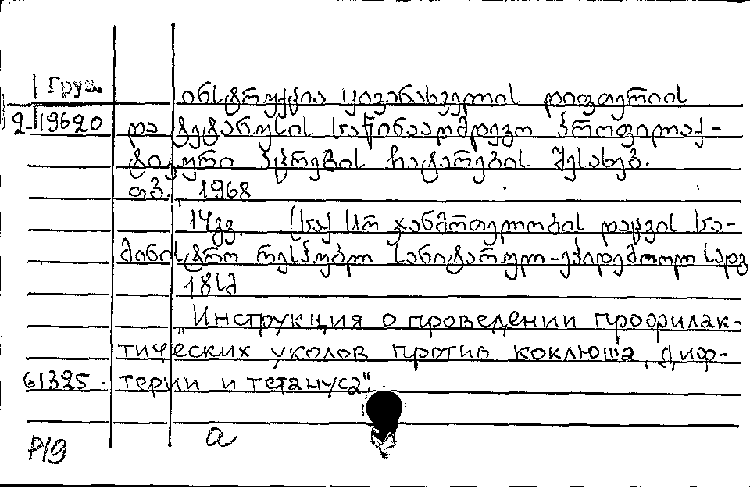 Груз.
ინსტრუქცია ყივანახველის დიფთერიის
2-19620 და ტეტანუსის საწინააღმდეგო პროფილაქ-
ტიკური აცრების ჩატარების შესახებ.
თბ., 1968
14გვ. (საქ სსრ ჯანმრთელობის დაცვის სა-
მინისტრო რესპუბლ სანიტარულ-ეპიდემიოლ სადგ
"Инструкция о проведении профилак-
тических уколов против коклюша, диф-
61325. терии и тетануса".
P/g a